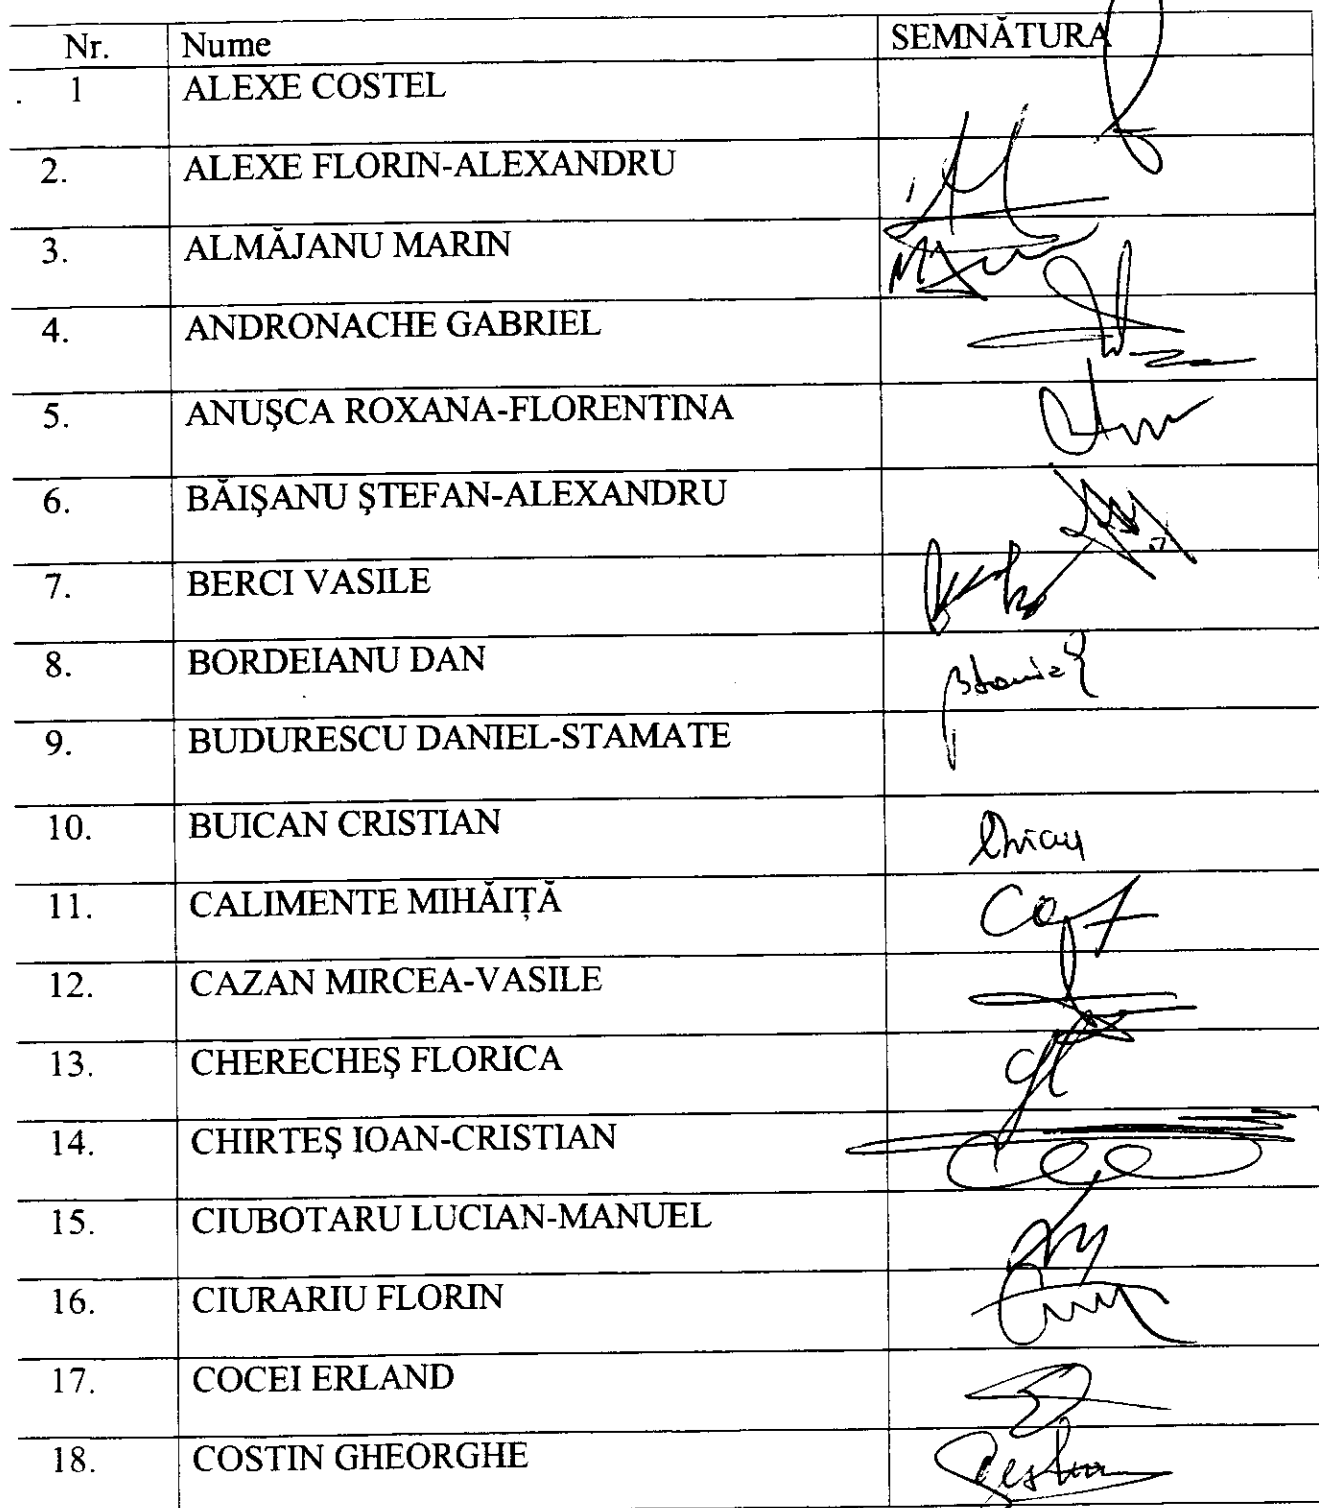 Nr. Nume SEMNĂTURA
1 ALEXE COSTEL
2. ALEXE FLORIN-ALEXANDRU
3. ALMĂJANU MARIN
4. ANDRONACHE GABRIEL
5. ANUŞCA ROXANA-FLORENTINA
6. BĂIŞANU ŞTEFAN-ALEXANDRU
7. BERCI VASILE
8. BORDEIANU DAN
9. BUDURESCU DANIEL-STAMATE
10. BUICAN CRISTIAN
11. CALIMENTE MIHĂIȚĂ
12. CAZAN MIRCEA-VASILE
13. CHERECHEŞ FLORICA
14. CHIRTEŞ IOAN-CRISTIAN
15. CIUBOTARU LUCIAN-MANUEL
16. CIURARIU FLORIN
17. COCEI ERLAND
18. COSTIN GHEORGHE